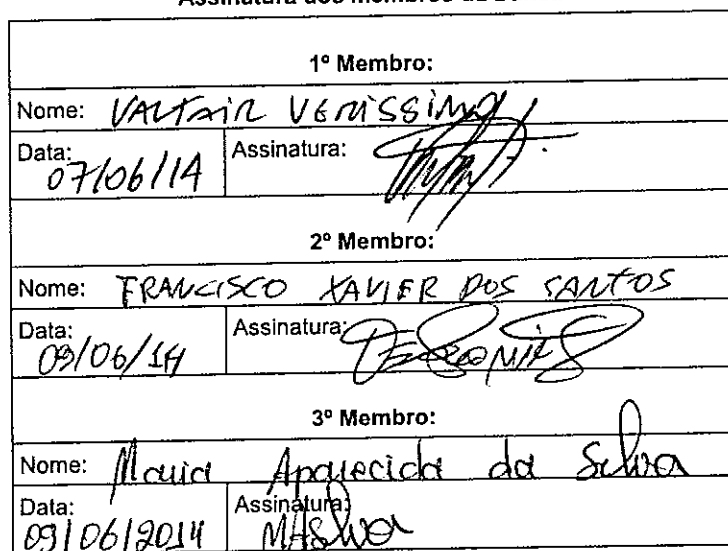 Assinatura dos membros da
1º Membro:
Nome: VALTAIR VERISSIMO
Data: 07/06/14 Assinatura:
2º Membro:
Nome: FRANCISCO XAVIER DOS SANTOS
Data: 09/06/14 Assinatura:
3º Membro:
Nome: Maria Aparecida da Silva
Data: 09/06/2014 Assinatura: MASilva